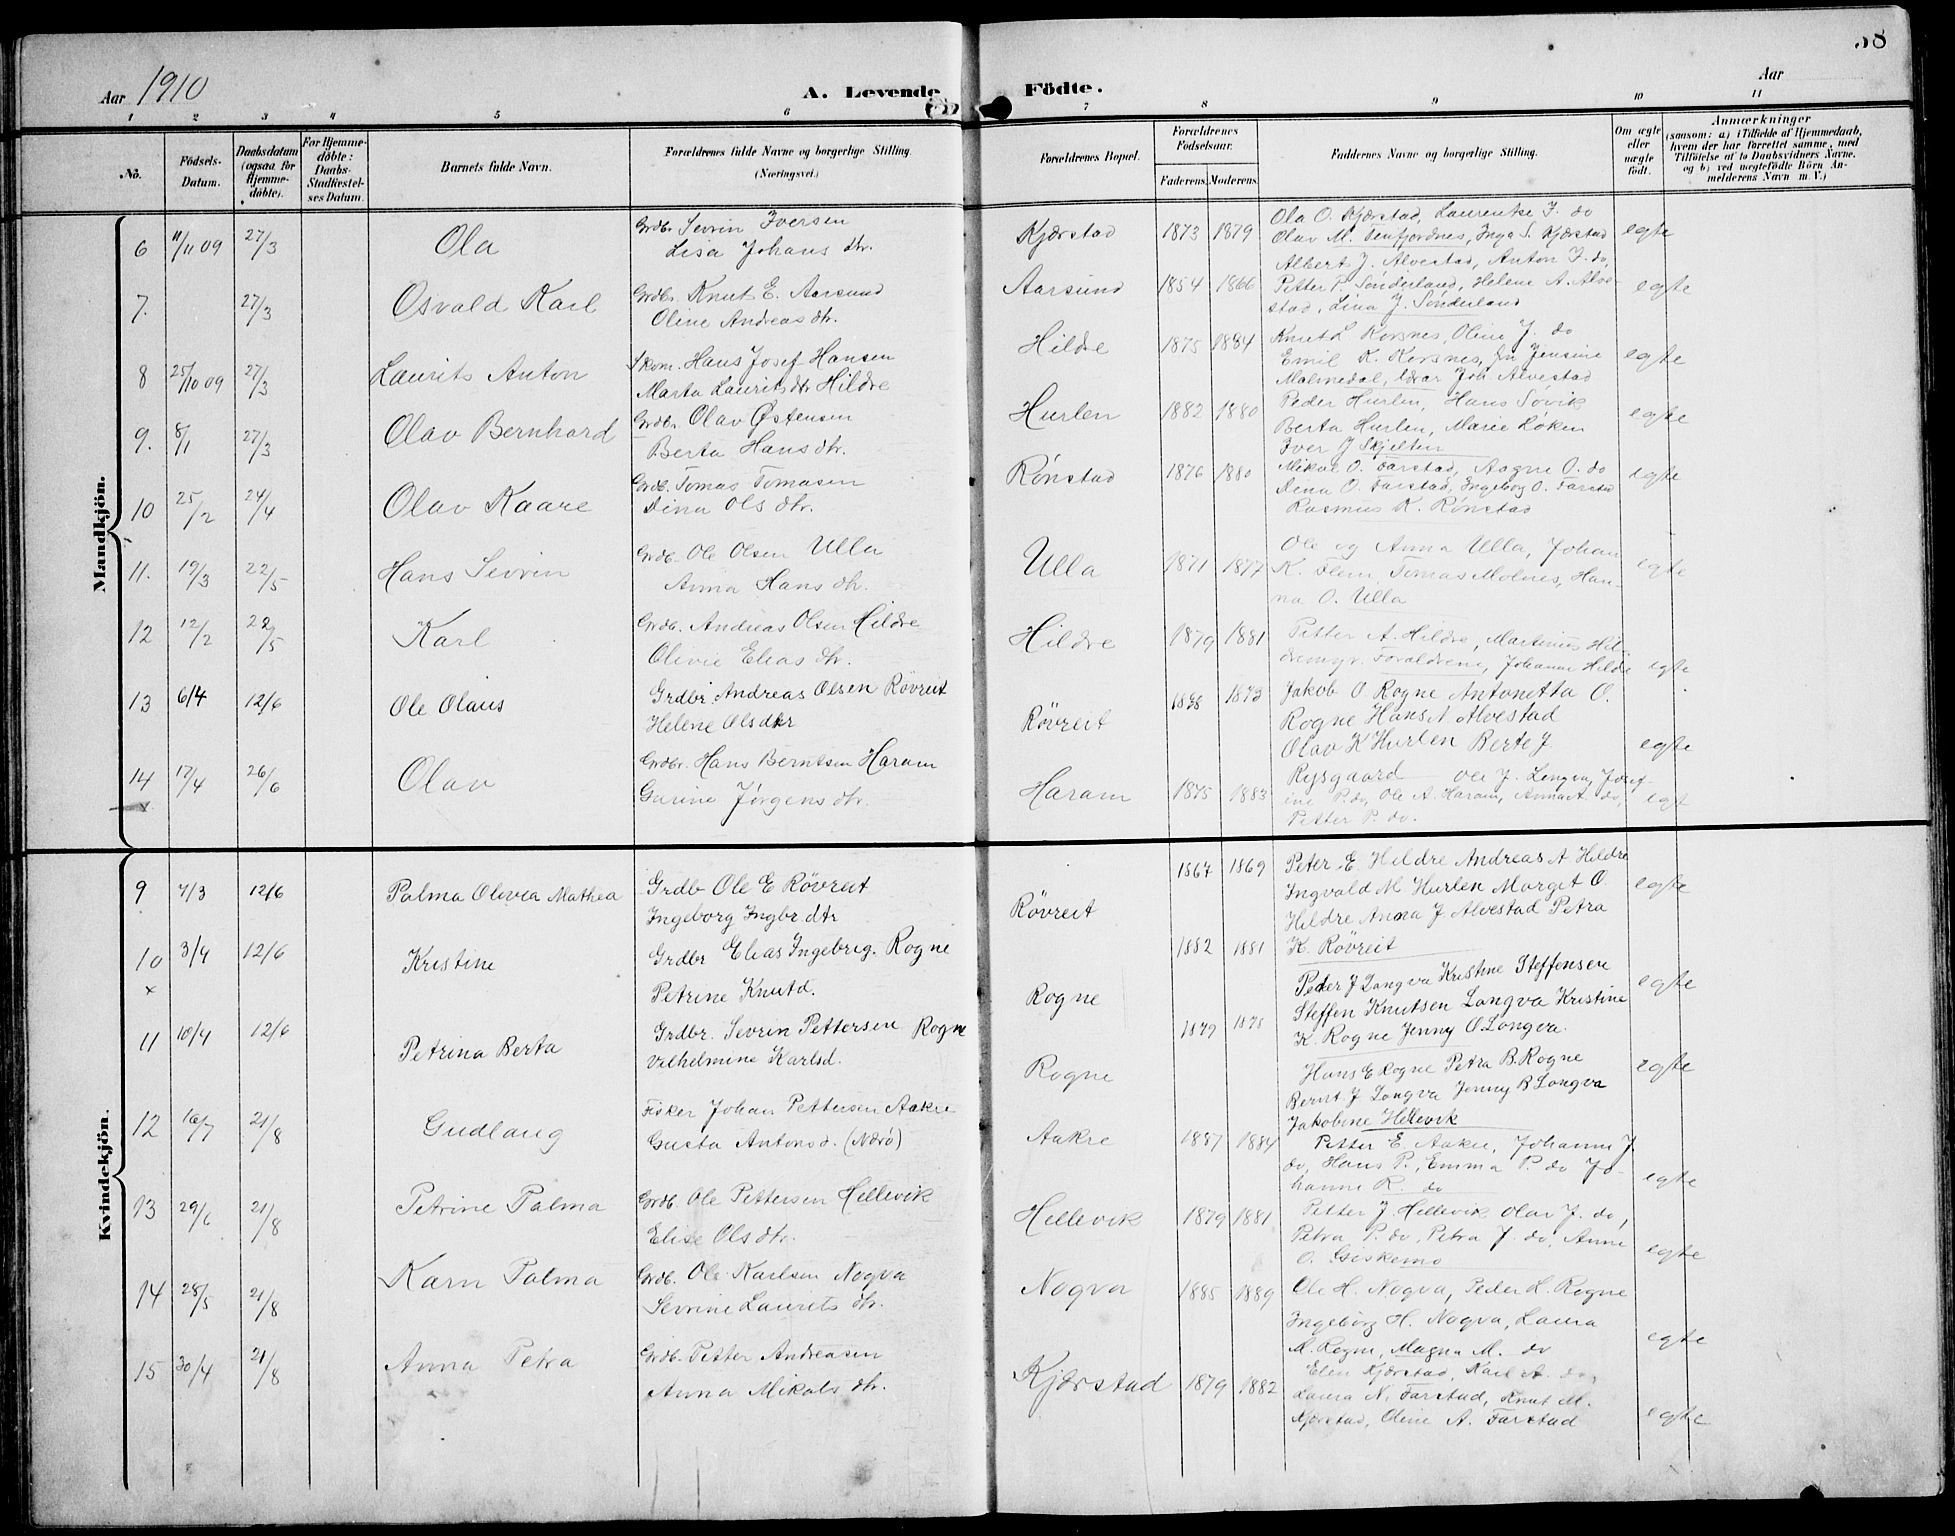 38
Aar 1910
A. Levende
Födte.
Aar
1 2 3 4 5 6 7 8 9 10 11
No.
Födsels-Datum.
Daabsdatum (ogsaa for Hjemme-döbte).
For Hjemme-döbte: Daabs-Stadfæstel-ses Datum.
Barnets fulde Navn.
Forældrenes fulde Navne og borgerlige Stilling. (Næringsvei.)
Forældrenes Bopæl.
Forældrenes Födselsaar.
Faderens. Moderens.
Faddernes Navne og borgerlige Stilling.
Om ægte eller uægte födt.
Anmærkninger
(saasom: a) i Tilfælde af Hjemmedaab, hvem der har forrettet samme, med Tilföielse af to Daabsvidners Navne, og b) ved uægtefödte Börn An-melderens Navn m. V.)
Mandkjön.
6 11/11 09 27/3 Ola Grdbr. Sevrin Iversen
Lisa Johans dtr.
Kjærstad 1873 1879 Ola O. Kjærstad, Laurentse I. do
Olav M. Tenfjordnes, Inga S. Kjærstad egte
7. 27/3 Osvald Karl Grdbr. Knut E. Aarsund
Oline Andreas dtr.
Aarsund 1854 1866 Albert J. Alvestad, Anton J. do,
Petter P. Sønderland, Helene A. Alve-
stad, Lina J. Sønderland egte
8 25/10 09 27/3 Laurits Anton Skom. Hans Josef Hansen
Marta Laurits dtr Hildre
Hildre 1875 1884 Knut L Korsnes, Oline J. do
Emil K. Korsnes, Jensine
Malmedal, Joh. Alvestad egte
9. 8/1 27/3 Olav Bernhard Grdbr. Olav Østensen
Berta Hans dtr.
Hurlen 1882 1880 Peder Hurlen, Hans Søvik
Berta Hurlen, Marie Løken
Iver J Skjelten egte
10 25/2 24/4 Olav Kaare Grdb. Tomas Tomasen
Dina Ols dtr.
Rønstad 1876 1880 Mikal O. Farstad, Aagne O. do
Dina O. Farstad, Ingeborg O. Farstad
Rasmus K. Rønstad egte
11. 19/3 22/5 Hans Sevrin Grdb. Ole Olsen Ulla
Anna Hans dtr.
Ulla 1871 1877 Ole og Anna Ulla, Johan
K. Flem, Tomas Molnes, Han-
na O. Ulla egte
12 12/2 22/5 Karl Grdb. Andreas Olsen Hildre
Olivie Elias dtr.
Hildre 1879 1881 Petter A. Hildre, Martinus Hil-
dremyr. Forældrene, Johanne Hildre egte
13 6/4 12/6 Ole Olaus Grdbr. Andreas Olsen Rövreit
Helene Olsdtr
Rövreit 1873 Jakob O Rogne Antonetta O.
Rogne Hans A Alvestad
Olav K Hurlen Berte J.
Rysgaard egte
14 17/4 26/6 Olav Grdbr. Hans Berntsen Haram
Gurine Jørgens dtr.
Haram 1875 1883 Ole J. Longva, Josef-
ine P. do, Ole A Haram, Anna A. do,
Petter P. do. egt
Kvindekjön.
9 7/3 12/6 Palma Olivia Mathea Grdb Ole E Rövreit
Ingeborg Ingbr dtr
Rövreit 1867 1869 Peter E. Hildre Andreas A Hildre
Ingvald M Hurlen Marget O
Hildre Anna J Alvestad Petra
K. Rövreit egte
10 3/4 12/6 Kristine Grdbr Elias Ingebrig. Rogne
Petrine Knutd.
Rogne 1882 1881 Peder J Longva Kristine Steffensen
Steffen Knutsen Longva Kristine
K. Rogne Jenny O Longva. egte
11 10/4 12/6 Petrina Berta Grdbr. Sevrin Pettersen Rogne
Vilhelmine Karlsd.
Rogne 1879 1878 Hans E Rogne Petra B. Rogne
Bernt J Longva Jenny B Longva
Jakobine Hellevik egte
12 16/7 21/8 Gudlaug Fisker Johan Pettersen Aakre
Gusta Antons d. (Nærö)
Aakre 1887 1884 Petter E. Aakre, Johanne J.
do, Hans P., Emma P. do Jo-
hanne R. do egte
13 29/6 21/8 Petrine Palma Grdb. Ole Pettersen Hellevik
Elise Ols dtr.
Hellevik 1879 1881 Petter J. Hellevik Olav J. do,
Petra P. do, Petra J. do, Anne
O. Giskemo egte
14 28/5 21/8 Karn Palma Grdb. Ole Karlsen Nogva
Sevrine Laurits dtr.
Nogva 1885 1889 Ole H. Nogva, Peder L. Rogne
Ingeborg H. Nogva, Laura
A. Rogne, Magna M. do egte
15 30/4 21/8 Anna Petra Grdb. Petter Andreasen
Anna Mikals dtr.
Kjærstad 1879 1882 Elen Kjærstad, Karl A. do,
Laura N. Farstad, Knut M.
Kjærstad, Oline A. Farstad egte